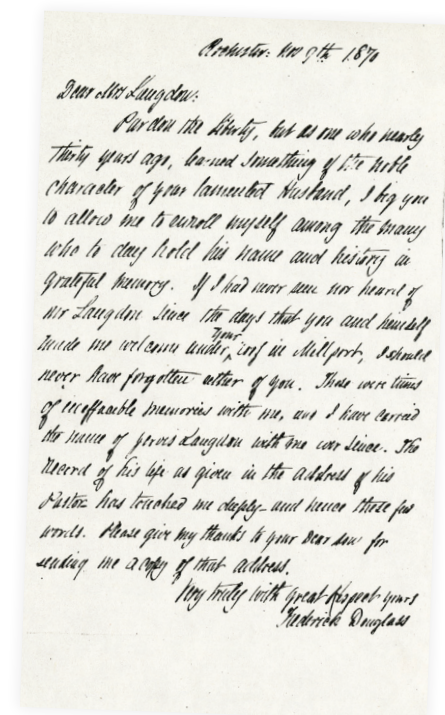 Rochester: Nov 9th 1870
Dear Mrs Langdon:
Pardon the liberty, but as one who nearly
thirty years ago, learned something of the noble
character of your lamented Husband, I beg you
to allow me to enroll myself among the many
who to day hold his name and history in
grateful memory. If I had never seen nor heard of
mr Langdon since the days that you and himself
made me welcome under your roof in Millport, I should
never have forgotten either of you. Those were times
of ineffaceable memories with me, and I have carried
the name of Jervis Langdon with me ever since. The
record of his life as given in the address of his
Pastor has touched me deeply - and hence these few
words. Please give my thanks to your dear son for
sending me a copy of that address.
Very truly with great respect yours
Frederick Douglass